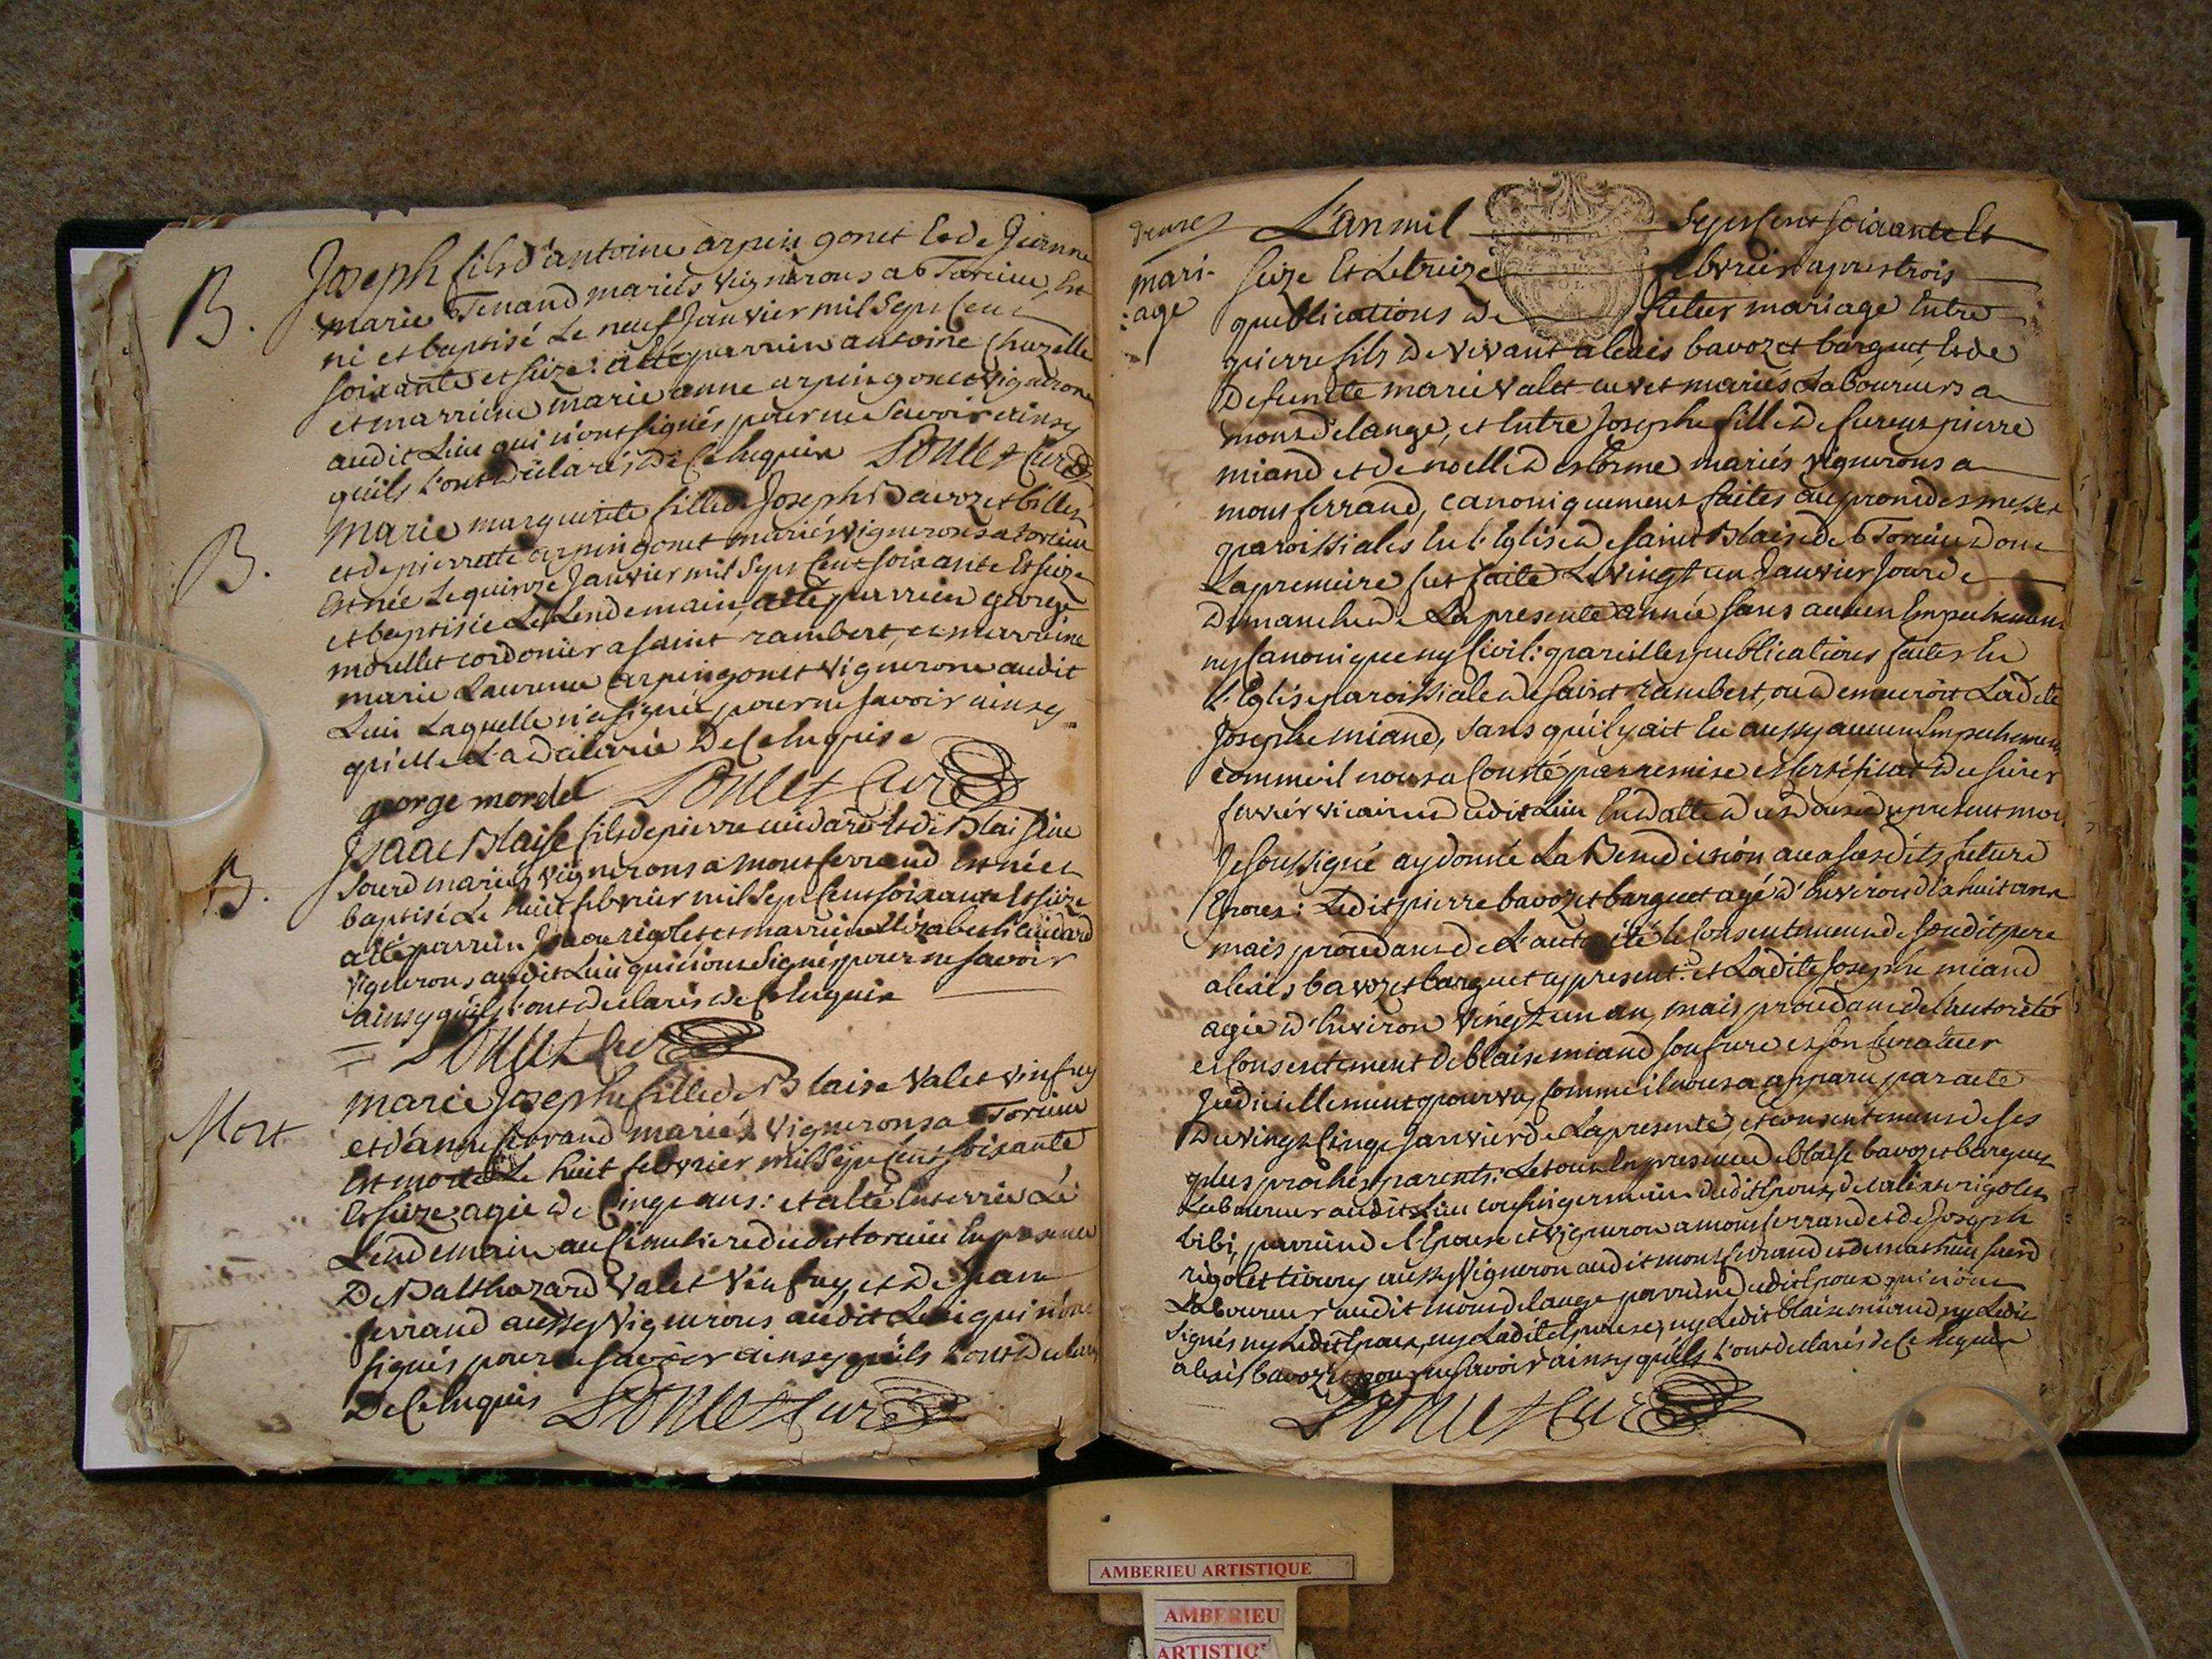 B.
Joseph fils d'antoine arpin gonet et de Jeanne
marie Tenand mariés vignerons a Torcieu est
né et baptisé Le neuf Janvier mil Sept Cent
soixante et seize: a été parrain antoine Chazelle
et marreine marie anne arpin gonet vignerons
audit Lieu qui n'ont signés pour ne Savoir ainsy
quils l'ont déclarés de Ce Enquis Bonnet Curé
B.
marie marguerite fille de Joseph Bavozet billet
et de pierrette arpin gonet mariés vignerons a torcieu
est née Le quinze Janvier mil Sept Cent soixante et seize
et baptisée Le Lendemain, a été parrein george
morellet cordonier a saint rambert, et marreine
marie Laurence arpin gonet vignerone audit
Lieu Laquelle n'a signée pour ne savoir ainsy
qu'elle L'a déclarée De Ce Enquise
george morelel Bonnet Curé
B.
Isaac Blaise fils de pierre cuidard et de Blaisine
Sourd mariés vignerons a montferrand est né et
baptisé Le huit febvrier mil Sept Cent soixante et seize
a été parrein Isaac rigolet et marreine Elizabeth cuidard
vignerons audit Lieu qui n'ont Signés pour ne savoir
ainsy quils l'ont déclarés de Ce Enquis
Bonnet Curé
Mort
marie Josephe fille de Blaise Valet vinfrey
et d'anne ferrand mariés vignerons a Torcieu
est morte Le huit febvrier mil Sept Cent soixante
et seize agée de Cinq ans: et a été Enterrée Le
Lendemain au Cimetiere dudit torcieu En presence
De Balthazard Valet Vinfrey, et de Jean
ferrand aussy Vignerons audit Lieu qui n'ont
signés pour ne savoir ainsy quils L'ont declarés
De Ce Enquis Bonnet Curé
mari-
:age
L'an mil Sept Cent soixante Et
seize Et Le treize febvrier apres trois
publications de futur mariage Entre
pierre fils de vivant alexis bavozet barguet et de
Defuncte marie valet mariés Laboureurs a
mont de lange, et Entre Josephe fille de fut pierre
miand et de noelle mariés vignerons a
montferrand, canoniquement faites au prone des messes
paroissiales En l'Eglise de saint Blaise de Torcieu dont
La premiere fut faite Le vingt un Janvier Jour de
Dimanche de La presente année sans aucun Empechement
ny Canonique ny Civil: pareilles publications faites En
L'Eglise paroissiale de saint rambert, ou demeuroit Ladite
Josephe miand, sans quil y ait Eu aussy aucun Empechement
comme il nous a Consté par remise et Certificat du sieur
favier vicaire dudit Lieu En datte du douze du present mois
Je soussigné ay donné La Benediction aux susdits futurs
Epoux: Ledit pierre bavozet barguet agé d'Environ dix huit ans
mais procedant de L'autorité et Consentement de Sondit pere
alexis bavozet barguet cy present: et Ladite Josephe miand
agée d'Environ vingt un an, mais procedant de l'autorité
et Consentement de blaise miand son frere et son Curateur
Judiciellement pourvu, Comme il nous a apparu par acte
Du vingt Cinq Janvier de La presente, et consentement de ses
plus proches parents: Le tout En presence de blaise bavozet barguet
Laboureur audit Lieu cousin germain dudit Epoux, de rigolet
bibi, parrein de l'Epouse et vigneron a montferrand et de Joseph
rigolet aussy Vigneron audit montferrand et de mathieu sourd
Laboureur audit mont de lange parrein dudit Epoux qui n'ont
Signés ny Ledit Epoux, ny Ladite Epouse, ny Ledit blaise miand, ny Ledit
alexis bavozet pour ne savoir ainsy quils l'ont declarés de Ce Enquis
Bonnet Curé
AMBERIEU ARTISTIQUE
AMBERIEU
ARTISTIQ